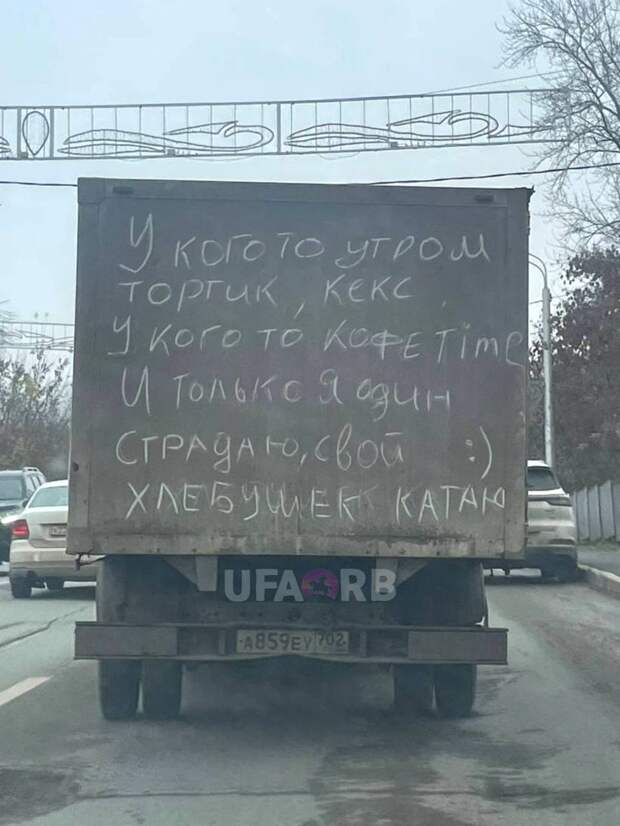 У кого то утром
тортик, кекс,
У кого то кофе Time
И только я один
страдаю, свой :)
хлебушек катаю
UFA RB
А859ЕУ 702